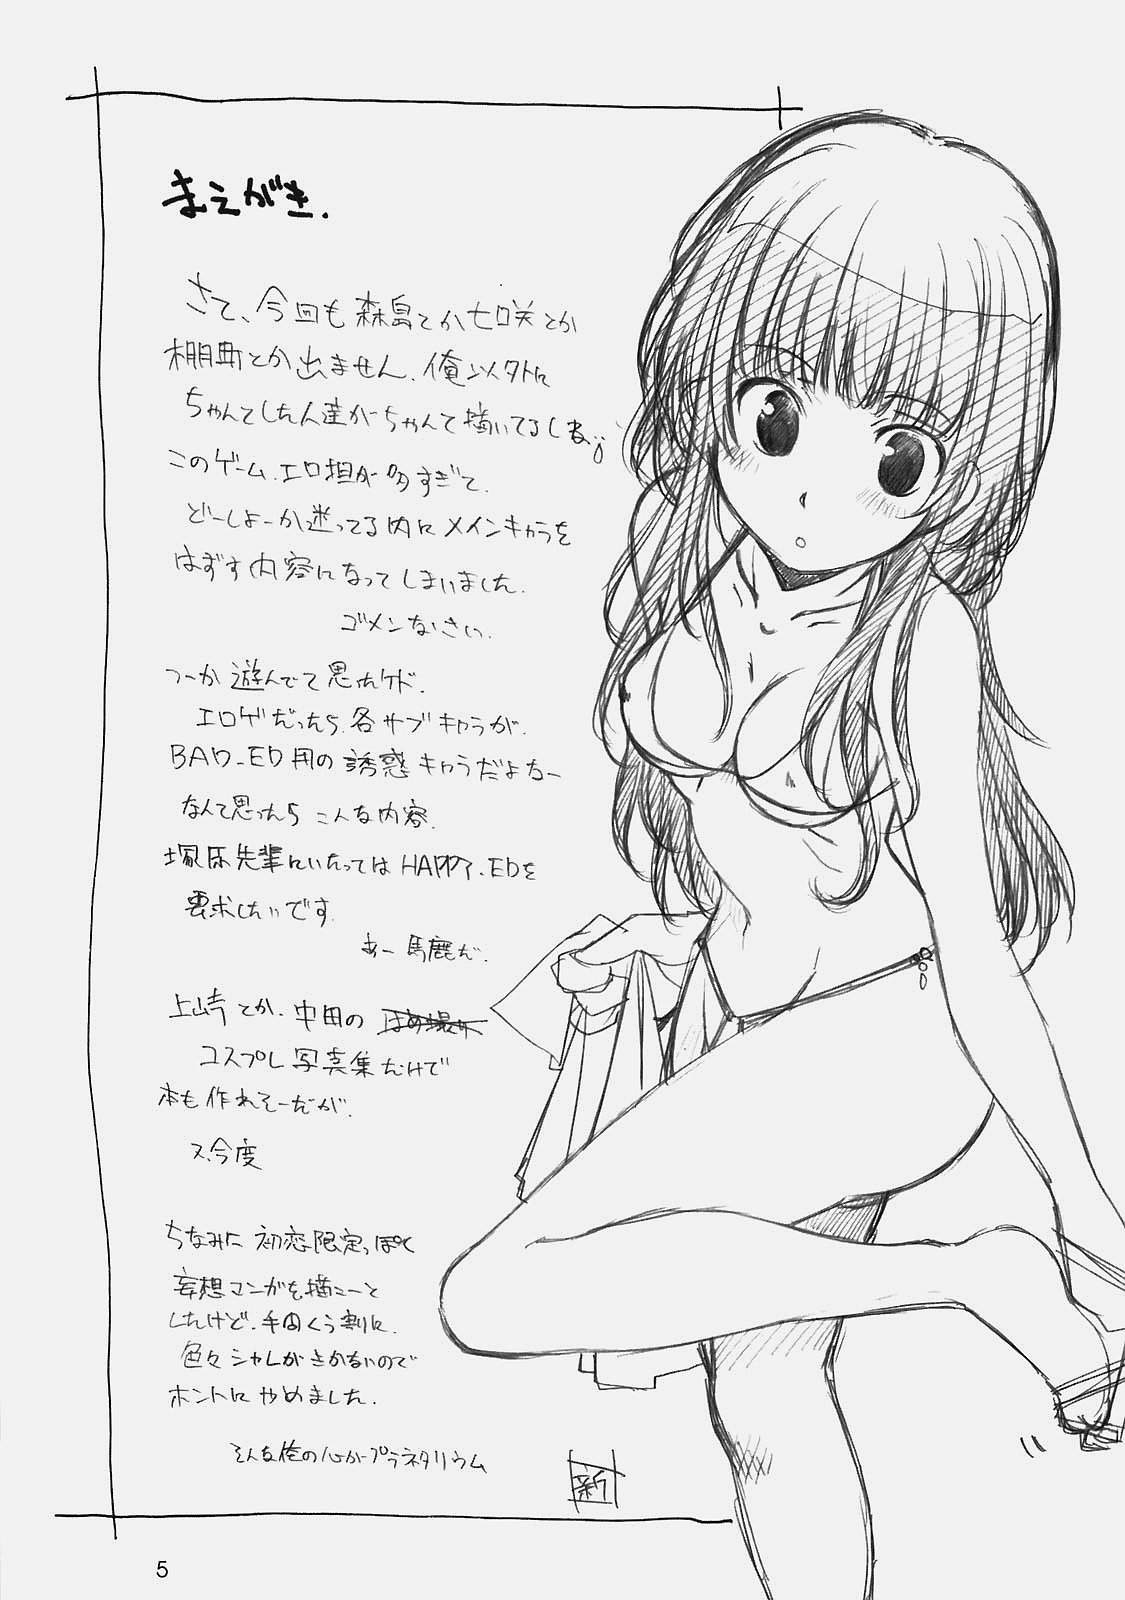 まえがき.
さて、今回も森島とか七咲とか
棚町とか出ません.俺以外に
ちゃんとした人達がちゃんて描いてるしね。
このゲーム.エロ担が多すぎて.
どーしよーか迷ってる内に メインキャラを
はずす内容になってしまいました.
ゴメンなさい.
つーか 遊んでて思ったケド.
エロゲだったら.各サブキャラが.
BAD_ED用の誘惑キャラだよなー
なんて思ったら こんな内容.
塚原先輩にいたっては HAPPY.EDを
要求したいです.
あー馬鹿だ.
上崎とか.中田の
コスプレ写真集だけで
本も作れそーだが.
ス.今度
ちなみに 初恋限定っぽく
妄想マンガを描こーと
したけど.手間くう割に.
色々シャレがきかないので
ホントに やめました.
そんな俺の心がプラネタリウム
新
5